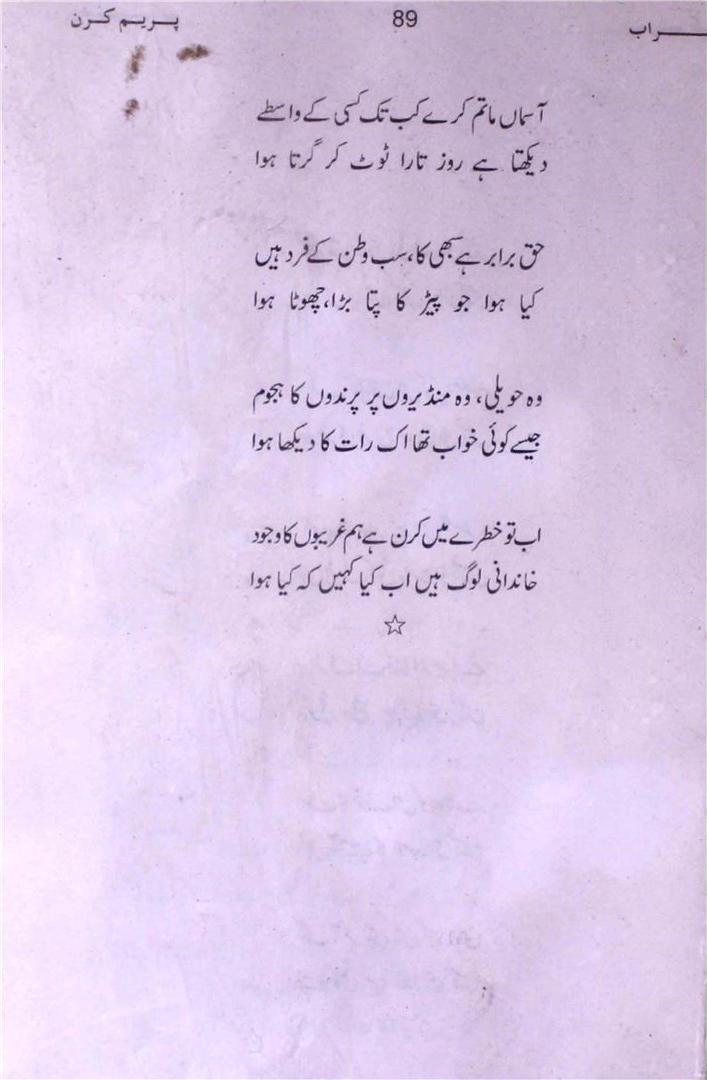 ـــراب 89 پریم کرن
آسماں ماتم کرے کب تک کسی کے واسطے
دیکھتا ہے روز تارا ٹوٹ کر گرتا ہوا
حق برابر ہے سبھی کا، سب وطن کے فرد ہیں
کیا ہوا جو پیڑ کا پتا بڑا، چھوٹا ہوا
وہ حویلی، وہ منڈیروں پر پرندوں کا ہجوم
جیسے کوئی خواب تھا اک رات کا دیکھا ہوا
اب تو خطرے میں کرن ہے ہم غریبوں کا وجود
خاندانی لوگ ہیں اب کیا کہیں کہ کیا ہوا
☆